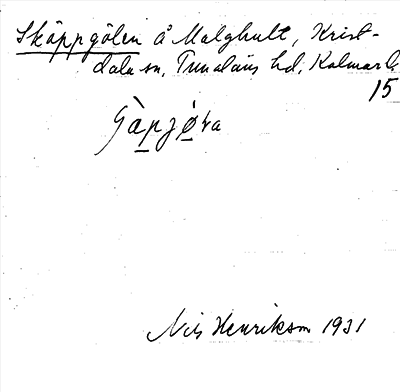 Skäppgölen å Malghult, Krist-
dala sn, Tunaläns hd, Kalmar l.
15
Nils Henrikson 1931